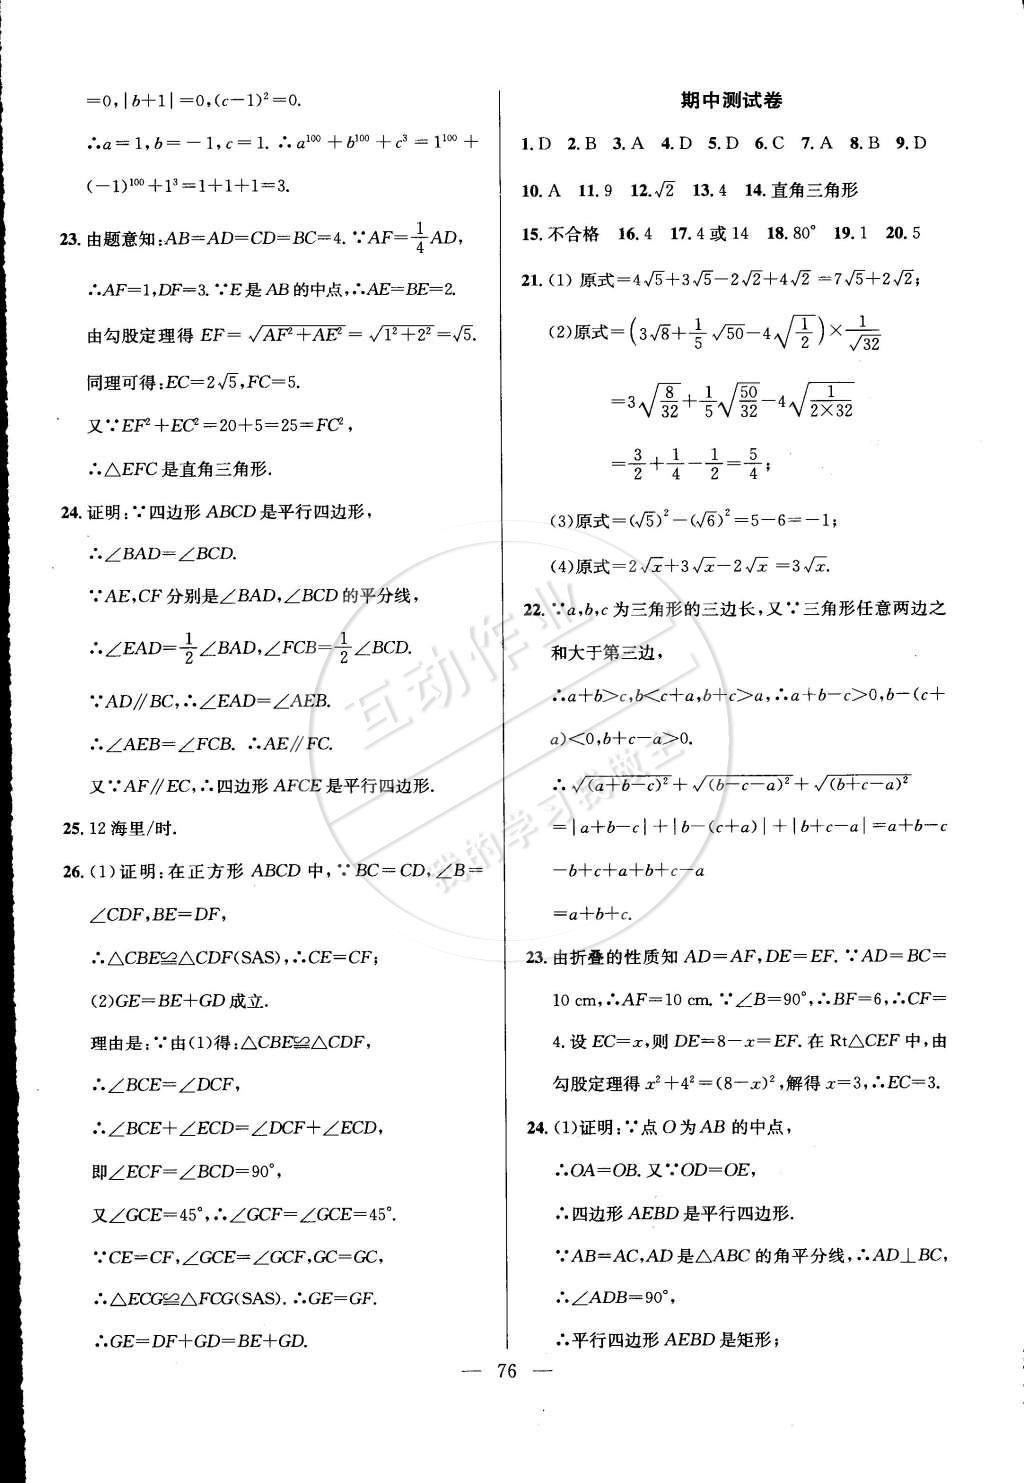 =0,|b+1|=0,(c-1)²=0.
∴a=1,b=-1,c=1. ∴a¹⁰⁰+b¹⁰⁰+c³=1¹⁰⁰+
(-1)¹⁰⁰+1³=1+1+1=3.
23. 由题意知:AB=AD=CD=BC=4. ∵AF=1/4AD,
∴AF=1,DF=3. ∵E是AB的中点,∴AE=BE=2.
由勾股定理得 EF=√(AF²+AE²)=√(1²+2²)=√5.
同理可得:EC=2√5,FC=5.
又∵EF²+EC²=20+5=25=FC²,
∴△EFC是直角三角形.
24. 证明:∵四边形ABCD是平行四边形,
∴∠BAD=∠BCD.
∵AE,CF分别是∠BAD,∠BCD的平分线,
∴∠EAD=1/2∠BAD,∠FCB=1/2∠BCD.
∵AD∥BC,∴∠EAD=∠AEB.
∴∠AEB=∠FCB. ∴AE∥FC.
又∵AF∥EC,∴四边形AFCE是平行四边形.
25. 12海里/时.
26. (1)证明:在正方形ABCD中,∵BC=CD,∠B=
∠CDF,BE=DF,
∴△CBE≌△CDF(SAS),∴CE=CF;
(2)GE=BE+GD成立.
理由是:∵由(1)得:△CBE≌△CDF,
∴∠BCE=∠DCF,
∴∠BCE+∠ECD=∠DCF+∠ECD,
即∠ECF=∠BCD=90°,
又∠GCE=45°,∴∠GCF=∠GCE=45°.
∵CE=CF,∠GCE=∠GCF,GC=GC,
∴△ECG≌△FCG(SAS). ∴GE=GF.
∴GE=DF+GD=BE+GD.
期中测试卷
1. D 2. B 3. A 4. D 5. D 6. C 7. A 8. B 9. D
10. A 11. 9 12. √2 13. 4 14. 直角三角形
15. 不合格 16. 4 17. 4或14 18. 80° 19. 1 20. 5
21. (1)原式=4√5+3√5-2√2+4√2=7√5+2√2;
(2)原式=(3√8+1/5√50-4√(1/2))×1/√32
=3√(8/32)+1/5√(50/32)-4√(1/(2×32))
=3/2+1/4-1/2=5/4;
(3)原式=(√5)²-(√6)²=5-6=-1;
(4)原式=2√x+3√x-2√x=3√x.
22. ∵a,b,c为三角形的三边长,又∵三角形任意两边之
和大于第三边,
∴a+b>c,b<c+a,b+c>a,∴a+b-c>0,b-(c+
a)<0,b+c-a>0.
∴√(a+b-c)²+√(b-c-a)²+√(b+c-a)²
=|a+b-c|+|b-(c+a)|+|b+c-a|=a+b-c
-b+c+a+b+c-a
=a+b+c.
23. 由折叠的性质知AD=AF,DE=EF. ∵AD=BC=
10 cm,∴AF=10 cm. ∵∠B=90°,∴BF=6,∴CF=
4. 设EC=x,则DE=8-x=EF. 在Rt△CEF中,由
勾股定理得x²+4²=(8-x)²,解得x=3,∴EC=3.
24. (1)证明:∵点O为AB的中点,
∴OA=OB. 又∵OD=OE,
∴四边形AEBD是平行四边形.
∵AB=AC,AD是△ABC的角平分线,∴AD⊥BC,
∴∠ADB=90°,
∴平行四边形AEBD是矩形;
— 76 —
互动作业
我的学习我做主